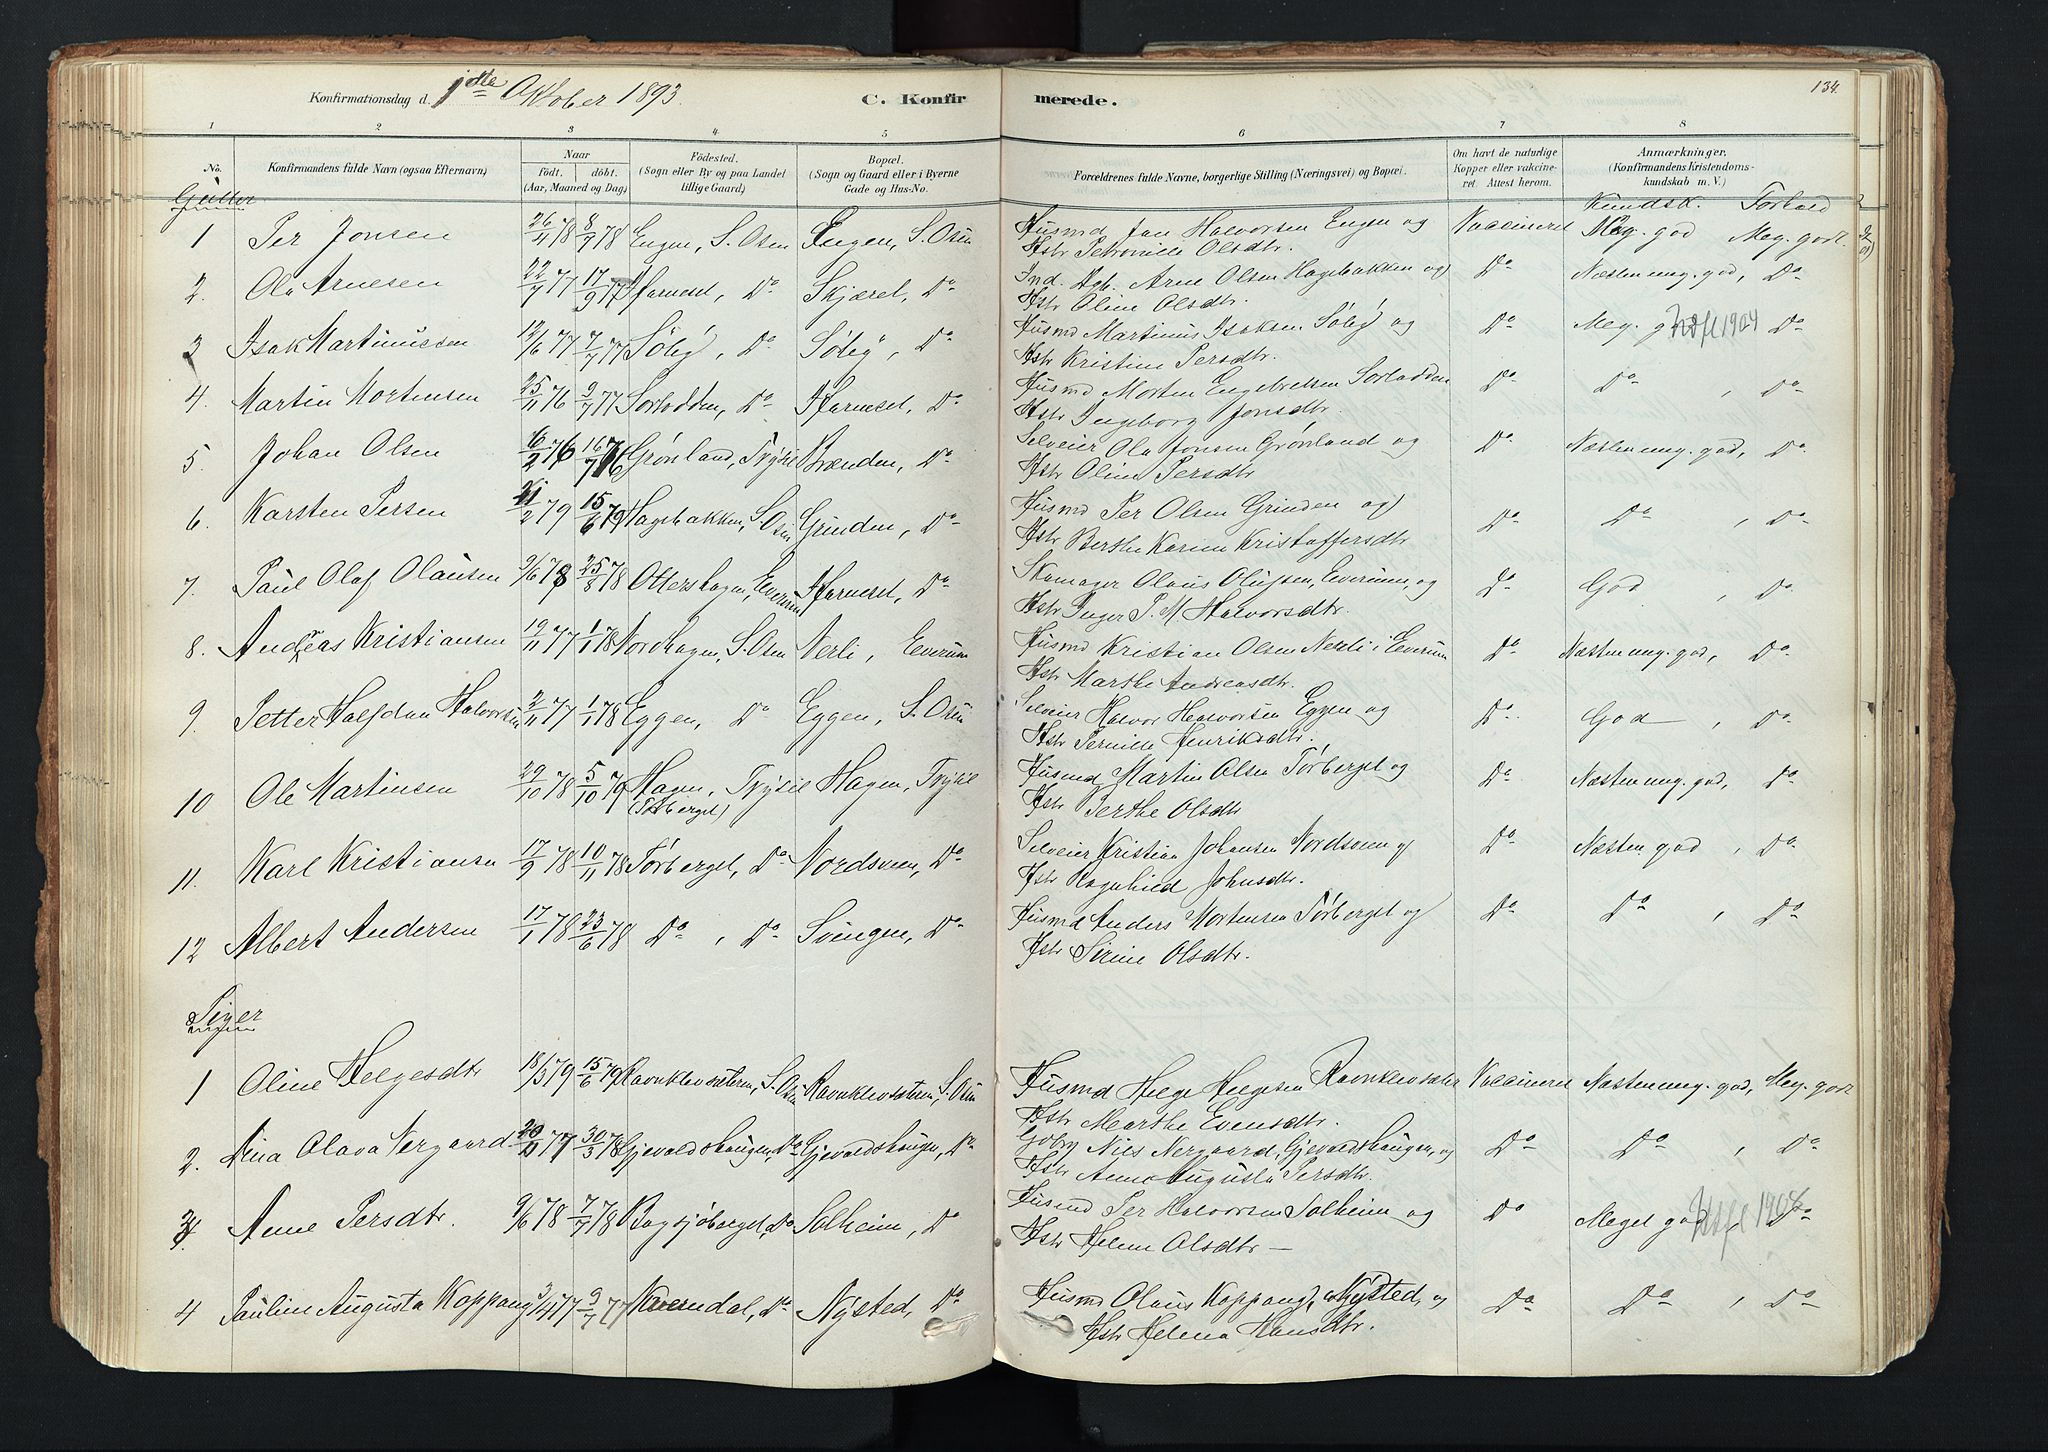 Konfirmationsdag d. 1ste Oktober 1893. C. Konfirmerede. 134.
1 2 3 4 5 6 7 8
No. Konfirmandens fulde Navn (ogsaa Efternavn) Naar födt. döbt. (Aar, Maaned og Dag) Födested. (Sogn eller By og paa Landet tillige Gaard) Bopæl. (Sogn og Gaard eller i Byerne Gade og Hus-No. Forældrenes fulde Navne, borgerlige Stilling (Næringsvei) og Bopæl. Om havt de naturlige Kopper eller vakcineret. Attest herom. Anmærkninger. (Konfirmandens Kristendomskundskab m. V.)
Gutter Kundsk. Forhold
1 Per Jonsen 26/4 78 8/7 78 Engen, S. Osen Engen, S. Osen Husmd Jon Halvorsen Engen og Vaccineret Meg. god Meg. godt.
Hstr Petronille Olsdtr.
2. Ola Arnesen 22/7 77 17/9 77 Harneset, Do Skjæret, Do Ind. Arne Olsen Hagebakken og Do Næsten meg. god, Do
Hstr Oline Olsdtr.
3 Isak Martinussen 12/6 77 7/7 77 Söby, Do Söby, Do Husmd Martinus Isaksen Söby og Do Meg. 1904 Do
Hstr Kristine Persdtr.
4. Martin Mortensen 25/11 76 9/7 77 Sorlodden, Do Harneset, Do Husmd Morten Engebretsen Sorlodden Do Do , Do
Hstr Ingeborg Jonsdtr.
5. Johan Olsen 16/2 76 16/7 76 Grönland, Trysil Brænden, Do Selveier Ola Jonsen Grönland og Do Næsten meg. god, Do
Hstr Oline Persdtr
6. Karsten Persen 21/2 79 15/6 79 Hagebakken, S. Osen Grinden, Do Husmd Per Olsen Grinden og Do Do , Do
Hstr Berthe Karine Kristoffersdtr
7. Paul Olaf Olausen 9/6 78 25/8 78 Ottershagen, Elverum Harneset, Do Skomager Olaus Olufsen, Elverum, og Do God , Do
Hstr Inger P. M. Halvorsdtr.
8. Andreas Kristiansen 19/11 77 1/1 78 Nordhagen, S. Osen Nerli, Elverum Husmd Kristian Olsen Nerli i Elverum Do Næsten meg. god, Do
Hstr Marthe Andreasdtr.
9. Petter Halfdan Halvorsen 2/11 77 1/1 78 Eggen, Do Eggen, S. Osen Selveier Halvor Halvorsen Eggen og Do God , Do
Hstr Pernille Henriksdtr.
10 Ole Martinsen 29/10 78 5/10 79 Hagen, Trysil Hagen, Trysil Husmd Martin Olsen Törberget og Do Næsten meg. god, Do
(Törberget) Hstr Berthe Olsdtr
11. Karl Kristiansen 17/9 78 10/11 78 Törberget, Do Nordsveen, Do Selveier Kristian Johansen Nordsveen og Do Næsten god , Do
Hstr Ragnhild Johnsdtr.
12 Albert Andersen 17/1 78 23/6 78 Do , Do Svingen, Do Husmd Anders Mortensen Törberget og Do Do , Do
Hstr Sirine Olsdtr.
Piger
1 Oline Helgesdtr 18/3 79 15/6 79 Ravnklevsæteren, S. Osen Ravnklevsæteren, S. Osen Husmd Helge Helgesen Ravnklevsæter Vaccineret Næsten meg. god, Meg. godt
Hstr Marthe Evensdtr.
2. Nina Olava Nergaard 77 30/3 78 Gjevaldshaugen, Do Gjevaldshaugen, Do Gbr Nils Nergaard, Gjevaldshaugen, og Do Do , Do
Hstr Anne Augusta Persdtr.
3. Anne Persdtr. 9/6 78 7/7 78 Bagsjöberget, Do Solheim, Do Husmd Per Halvorsen Solheim og Do Meget god, 1908 Do
Hstr Helene Olsdtr —
4 Pauline Augusta Koppang 3/4 77 9/7 77 Kverndal, Do Nysted, Do Husmd Olaus Koppang, Nysted, og Do Do , Do
Hstr Helena Hansdtr.